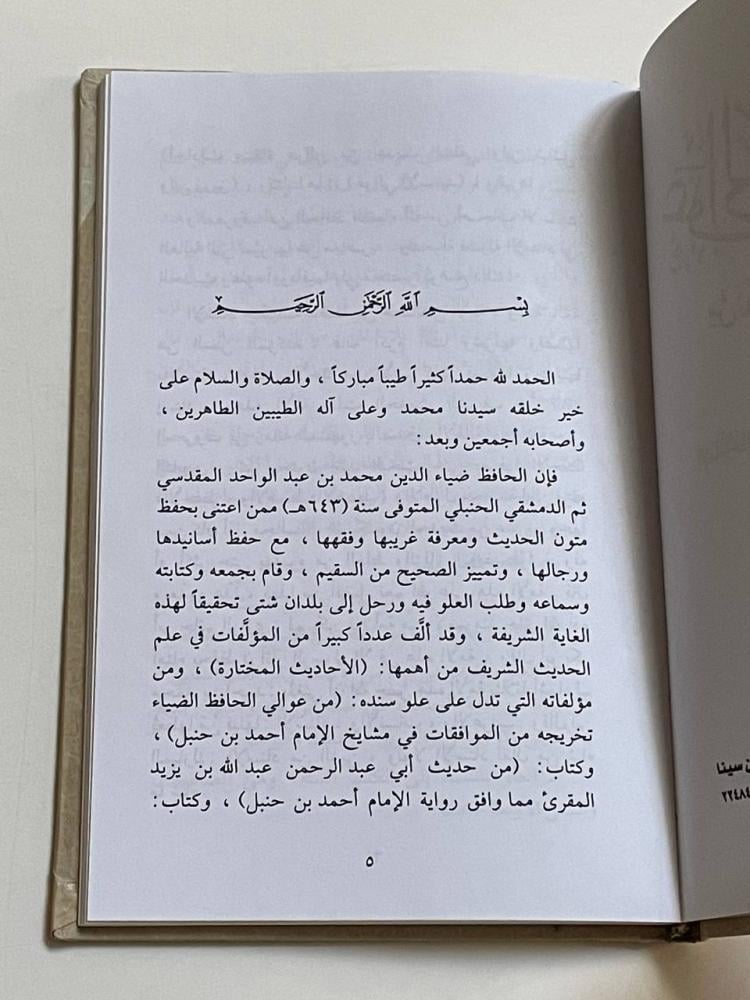 بسم الله الرحمن الرحيم
الحمد لله حمداً كثيراً طيباً مباركاً ، والصلاة والسلام على
خير خلقه سيدنا محمد وعلى آله الطيبين الطاهرين ،
وأصحابه أجمعين وبعد :
فإن الحافظ ضياء الدين محمد بن عبد الواحد المقدسي
ثم الدمشقي الحنبلي المتوفى سنة (٦٤٣هـ) ممن اعتنى بحفظ
متون الحديث ومعرفة غريبها وفقهها ، مع حفظ أسانيدها
ورجالها ، وتمييز الصحيح من السقيم ، وقام بجمعه وكتابته
وسماعه وطلب العلو فيه ورحل إلى بلدان شتى تحقيقاً لهذه
الغاية الشريفة ، وقد ألَّف عدداً كبيراً من المؤلَّفات في علم
الحديث الشريف من أهمها: (الأحاديث المختارة) ، ومن
مؤلفاته التي تدل على علو سنده: (من عوالي الحافظ الضياء
تخريجه من الموافقات في مشايخ الإمام أحمد بن حنبل) ،
وكتاب: (من حديث أبي عبد الرحمن عبد الله بن يزيد
المقرئ مما وافق رواية الإمام أحمد بن حنبل) ، وكتاب:
٥
سينا